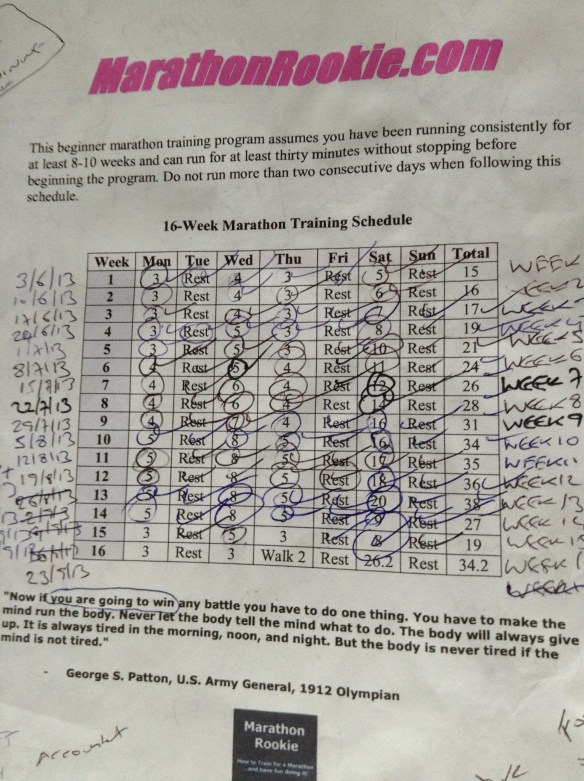 MarathonRookie.com
This beginner marathon training program assumes you have been running consistently for
at least 8-10 weeks and can run for at least thirty minutes without stopping before
beginning the program. Do not run more than two consecutive days when following this
schedule.
16-Week Marathon Training Schedule
Week Mon Tue Wed Thu Fri Sat Sun Total
3/6/13 1 3 Rest 4 3 Rest 5 Rest 15 WEEK
10/6/13 2 3 Rest 4 3 Rest 6 Rest 16
17/6/13 3 3 Rest 4 3 Rest 7 Rest 17
4 3 Rest 5 3 Rest 8 Rest 19
5 3 Rest 5 3 Rest 10 Rest 21 WEEK 5
8/7/13 6 4 Rest 5 4 Rest 11 Rest 24 WEEK 6
15/7/13 7 4 Rest 6 4 Rest 12 Rest 26 WEEK 7
22/7/13 8 4 Rest 6 4 Rest 14 Rest 28 WEEK 8
29/7/13 9 4 Rest 7 4 Rest 16 Rest 31 WEEK 9
5/8/13 10 5 Rest 8 5 Rest 16 Rest 34 WEEK 10
12/8/13 11 5 Rest 8 5 Rest 17 Rest 35 WEEK 11
19/8/13 12 5 Rest 8 5 Rest 18 Rest 36 WEEK 12
13 5 Rest 8 5 Rest 20 Rest 38 WEEK 13
14 5 Rest 8 5 Rest 9 Rest 27 WEEK
15 3 Rest 5 3 Rest 8 Rest 19 WEEK
16 3 Rest 3 Walk 2 Rest 26.2 Rest 34.2 WEEK
23/9/13
"Now if you are going to win any battle you have to do one thing. You have to make the
mind run the body. Never let the body tell the mind what to do. The body will always give
up. It is always tired in the morning, noon, and night. But the body is never tired if the
mind is not tired."
- George S. Patton, U.S. Army General, 1912 Olympian
Marathon
Rookie
How to Train for a Marathon
...and have fun doing it!